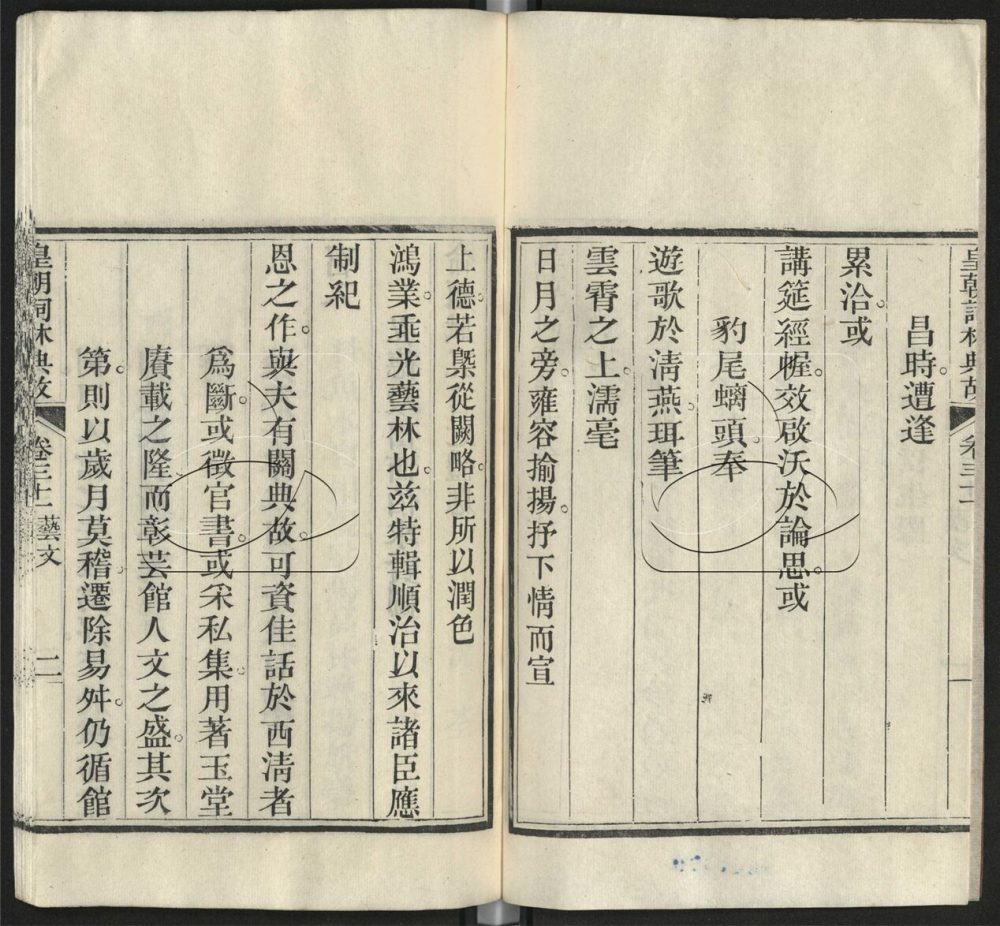 皇朝詞林典故 卷三十二 一
昌時遭逢
累洽或
講筵經幄效啟沃於論思或
豹尾螭頭奉
遊歌於淸燕珥筆
雲霄之上濡毫
日月之旁雍容揄揚抒下情而宣
上德若槩從闕略非所以潤色
鴻業垂光藝林也玆特輯順治以來諸臣應
制紀
恩之作與夫有關典故可資佳話於西淸者
爲斷或徵官書或采私集用著玉堂
賡載之隆而彰芸館人文之盛其次
第則以歲月莫稽遷除易舛仍循館
皇朝詞林典故 卷三十二 藝文 二